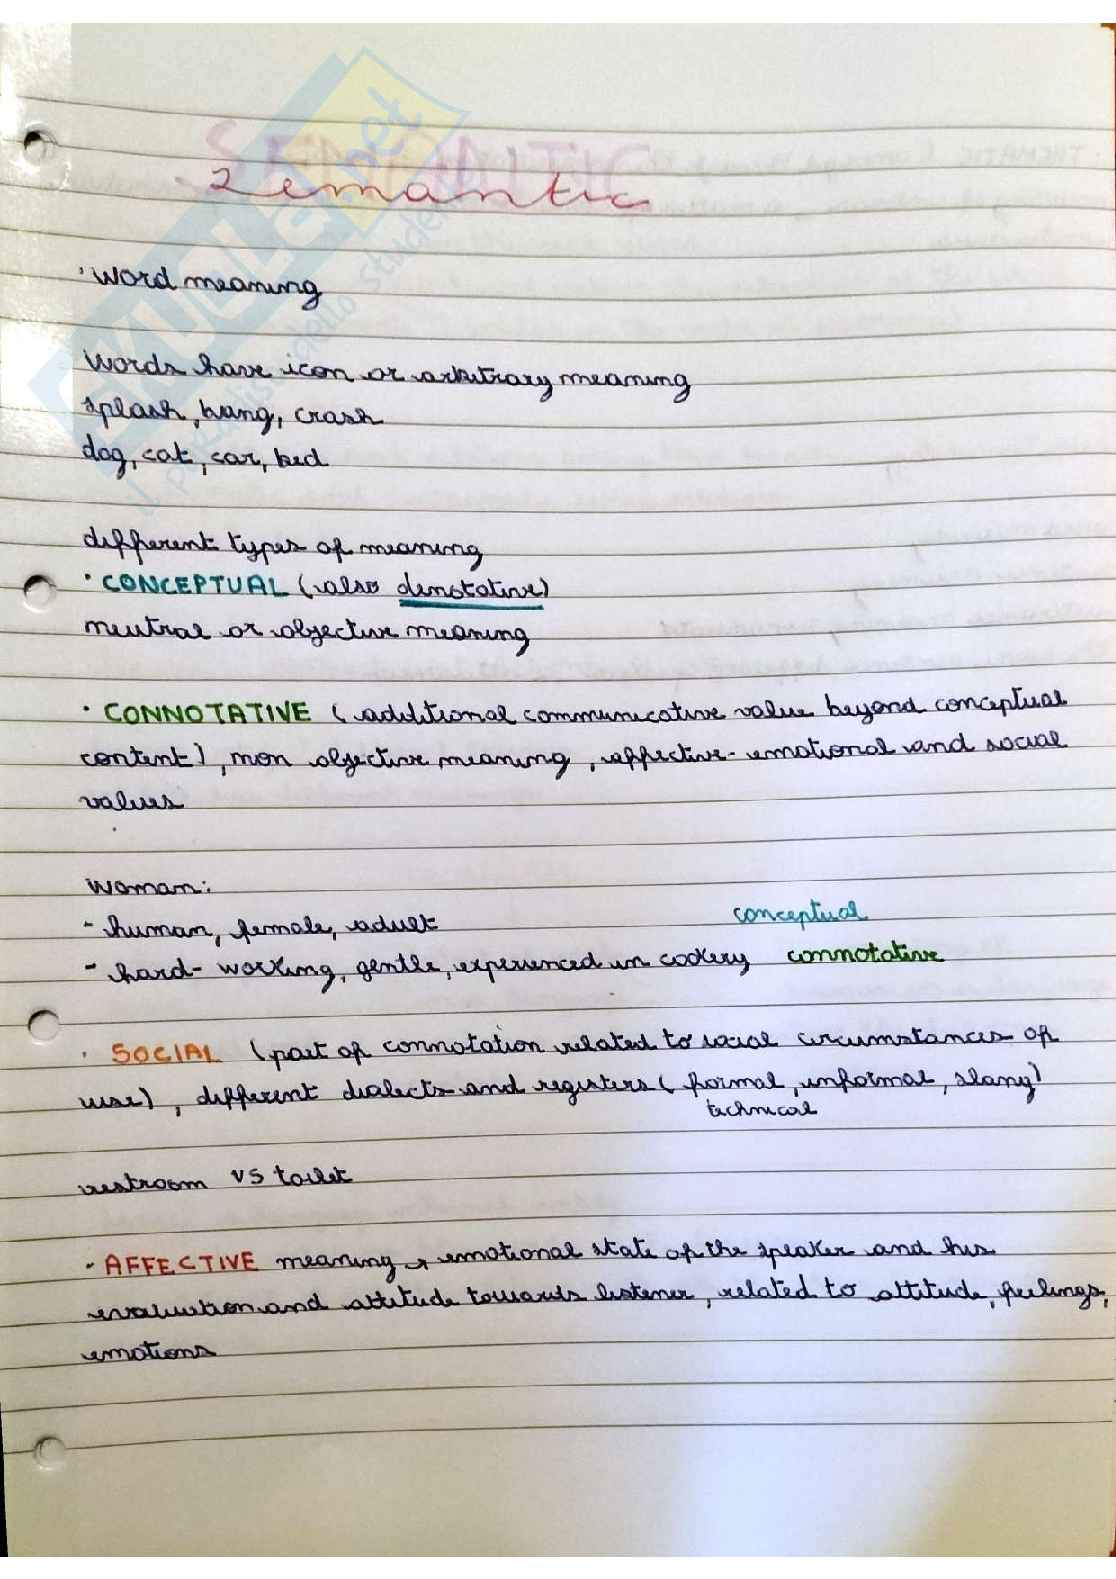 SEMANTIC
Semantic
· Word meaning
Words have icon or arbitrary meaning
splash, bang, crash
dog, cat, car, bed
different types of meaning
· CONCEPTUAL (also denotative)
neutral or objective meaning
· CONNOTATIVE (additional communicative value beyond conceptual
content), non objective meaning, affective-emotional and social
values
Woman:
- human, female, adult conceptual
- hard-working, gentle, experienced in cookery connotative
· SOCIAL (part of connotation related to social circumstances of
use), different dialects and registers (formal, informal, slang)
technical
restroom VS toilet
· AFFECTIVE meaning → emotional state of the speaker and his
evaluation and attitude towards listener, related to attitude, feelings,
emotions